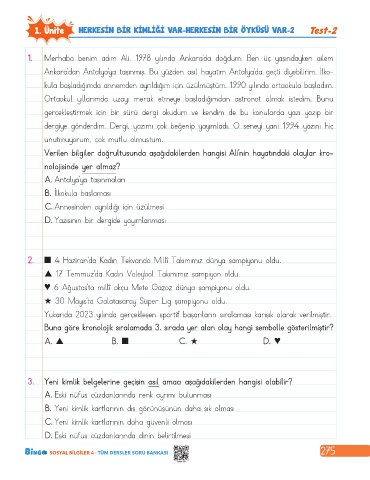 1. Ünite
HERKESİN BİR KİMLİĞİ VAR-HERKESİN BİR ÖYKÜSÜ VAR-2
Test-2
1. Merhaba benim adım Ali. 1978 yılında Ankara'da doğdum. Ben üç yaşındayken ailem
Ankara'dan Antalya'ya taşınmış. Bu yüzden asıl hayatım Antalya'da geçti diyebilirim. İlko-
kula başladığımda annemden ayrıldığım için üzülmüştüm. 1990 yılında ortaokula başladım.
Ortaokul yıllarımda uzayı merak etmeye başladığımdan astronot olmak istedim. Bunu
gerçekleştirmek için bir sürü dergi okudum ve kendim de bu konularda yazı yazıp bir
dergiye gönderdim. Dergi, yazımı çok beğenip yayımladı. O seneyi yani 1994 yazını hiç
unutmuyorum, çok mutlu olmuştum.
Verilen bilgiler doğrultusunda aşağıdakilerden hangisi Ali'nin hayatındaki olaylar kro-
nolojisinde yer almaz?
A. Antalya'ya taşınmaları
B. İlkokula başlaması
C. Annesinden ayrıldığı için üzülmesi
D. Yazısının bir dergide yayımlanması
2. ■ 4 Haziran'da Kadın Tekvando Millî Takımımız dünya şampiyonu oldu.
▲ 17 Temmuz'da Kadın Voleybol Takımımız şampiyon oldu.
♥ 6 Ağustos'ta millî okçu Mete Gazoz dünya şampiyonu oldu.
★ 30 Mayıs'ta Galatasaray Süper Lig şampiyonu oldu.
Yukarıda 2023 yılında gerçekleşen sportif başarıların sıralaması karışık olarak verilmiştir.
Buna göre kronolojik sıralamada 3. sırada yer alan olay hangi sembolle gösterilmiştir?
A. ▲ B. ■ C. ★ D. ♥
3. Yeni kimlik belgelerine geçişin asıl amacı aşağıdakilerden hangisi olabilir?
A. Eski nüfus cüzdanlarında renk ayrımı bulunması
B. Yeni kimlik kartlarının dış görünüşünün daha şık olması
C. Yeni kimlik kartlarının daha güvenli olması
D. Eski nüfus cüzdanlarında dinin belirtilmesi
BİNGO SOSYAL BİLGİLER 4 - TÜM DERSLER SORU BANKASI
275